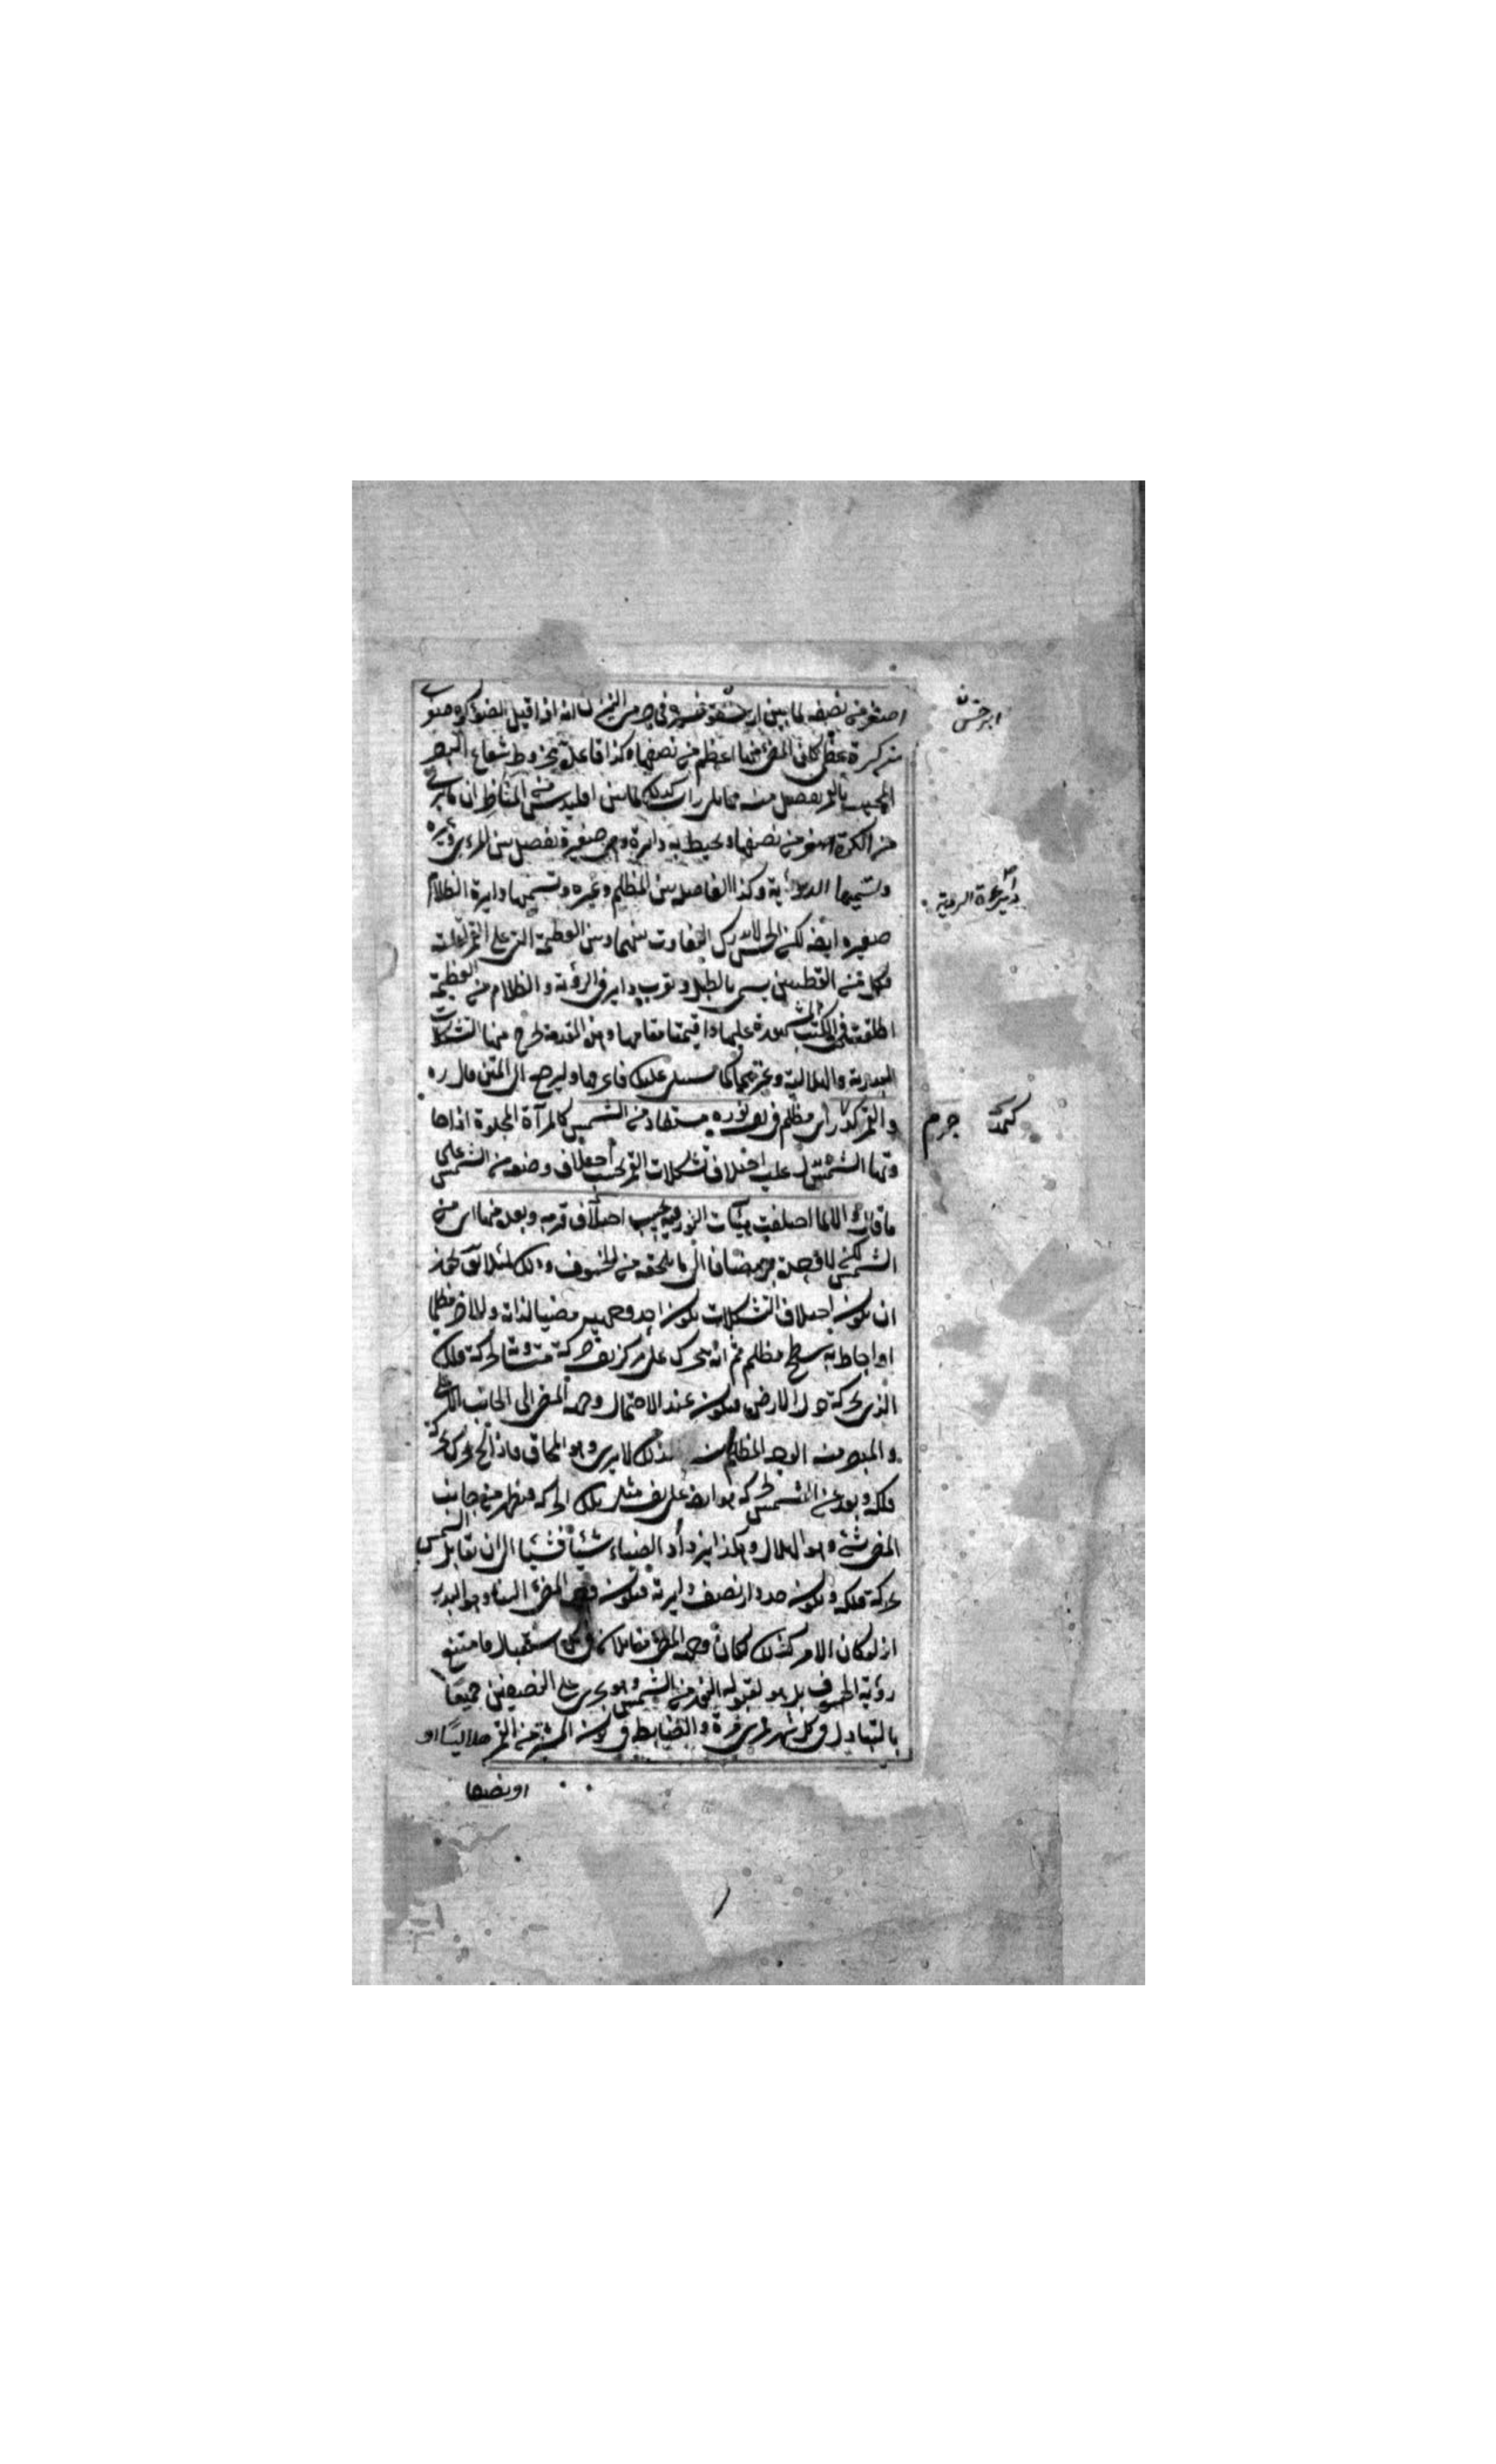 اصغر من نصفه لما بين ارسطرخس في جرمي النيرين انه اذا اقبل الضوء كرة صغرى
من كرة عظمى كان المضئ منها اعظم من نصفها وكذا قاعدة مخروط شعاع البصر
المحيط بالقمر تفصل منه كذلك لما بين اقليدس في المناظر ان ما يرى
من الكرة اصغر من نصفها ويحيط به دايرة وهي صغيرة تفصل بين المرئي وغيره
ونسميها الرؤية وكذا الفاصلة بين المظلم وغيره ونسميها دايرة الظلام
صغيرة ايضا لكن الحس لا يدرك التفاوت بينهما وبين العظيمة التي على القمر
فكل من القطعتين يسمى ولقرب دايرتي الرؤية والظلام من العظيمة
اطلقت في الكتب المشهورة عليها واقيمتا مقامها وهذه المقدمة يخرج منها التشكلات
البدرية والهلالية وغيرهما كما سيتلى عليك فاعرفها ولنرجع الى المتن قال ره
والقمر كمد اي مظلم في نفسه نوره مستفاد من الشمس كالمرآة المجلوة اذا
الشمس يدل عليه اختلاف تشكلات القمر بحسب اختلاف وضعه من الشمس على
ما قالوا انما اختلفت هيئات النور فيه بحسب اختلاف قربه وبعده منها اي من
الشمس لكن مضافا الى ما يلحقه من الخسوف وذلك لئلا يق يجوز
ان يكون اختلاف التشكلات بكون احد وجهيه مضيا لذاته والاخر مظلما
او احاط به سطح مظلم ثم انه يتحرك على مركز نفسه حركة متشابهة لحركة فلكه
الذي يحركه حول الارض فيكون عند الاجتماع وجهه المضئ الى الجانب الاعلى
والمبصر منه الوجه المظلم فلذلك لا يرى وهو المحاق فاذا تحرك بحركة
فلكه وبعد عن الشمس تحرك هو ايضا على نفسه مثل تلك الحركة فيظهر من جانب
المضئ شئ وهو الهلال وهكذا يزداد الضياء شيئا فشيئا الى ان يقابل الشمس
بحركة فلكه ويكون قد دار نصف دايرته فيكون وجهه المضئ الينا وهو البدر
اذ لو كان الامر كذلك لكان وجهه المضئ مقابلا في كل استقبال فامتنع
رؤية الخسوف بل هو لقبوله النور من الشمس وهو يجري على النصفين جميعا
بالتبادل في كل شهر قمري مرة والضابط في كون المستنير من القمر هلاليا او
او نصفا
ابرخس ن
دايرة الرؤية
كمد جرم